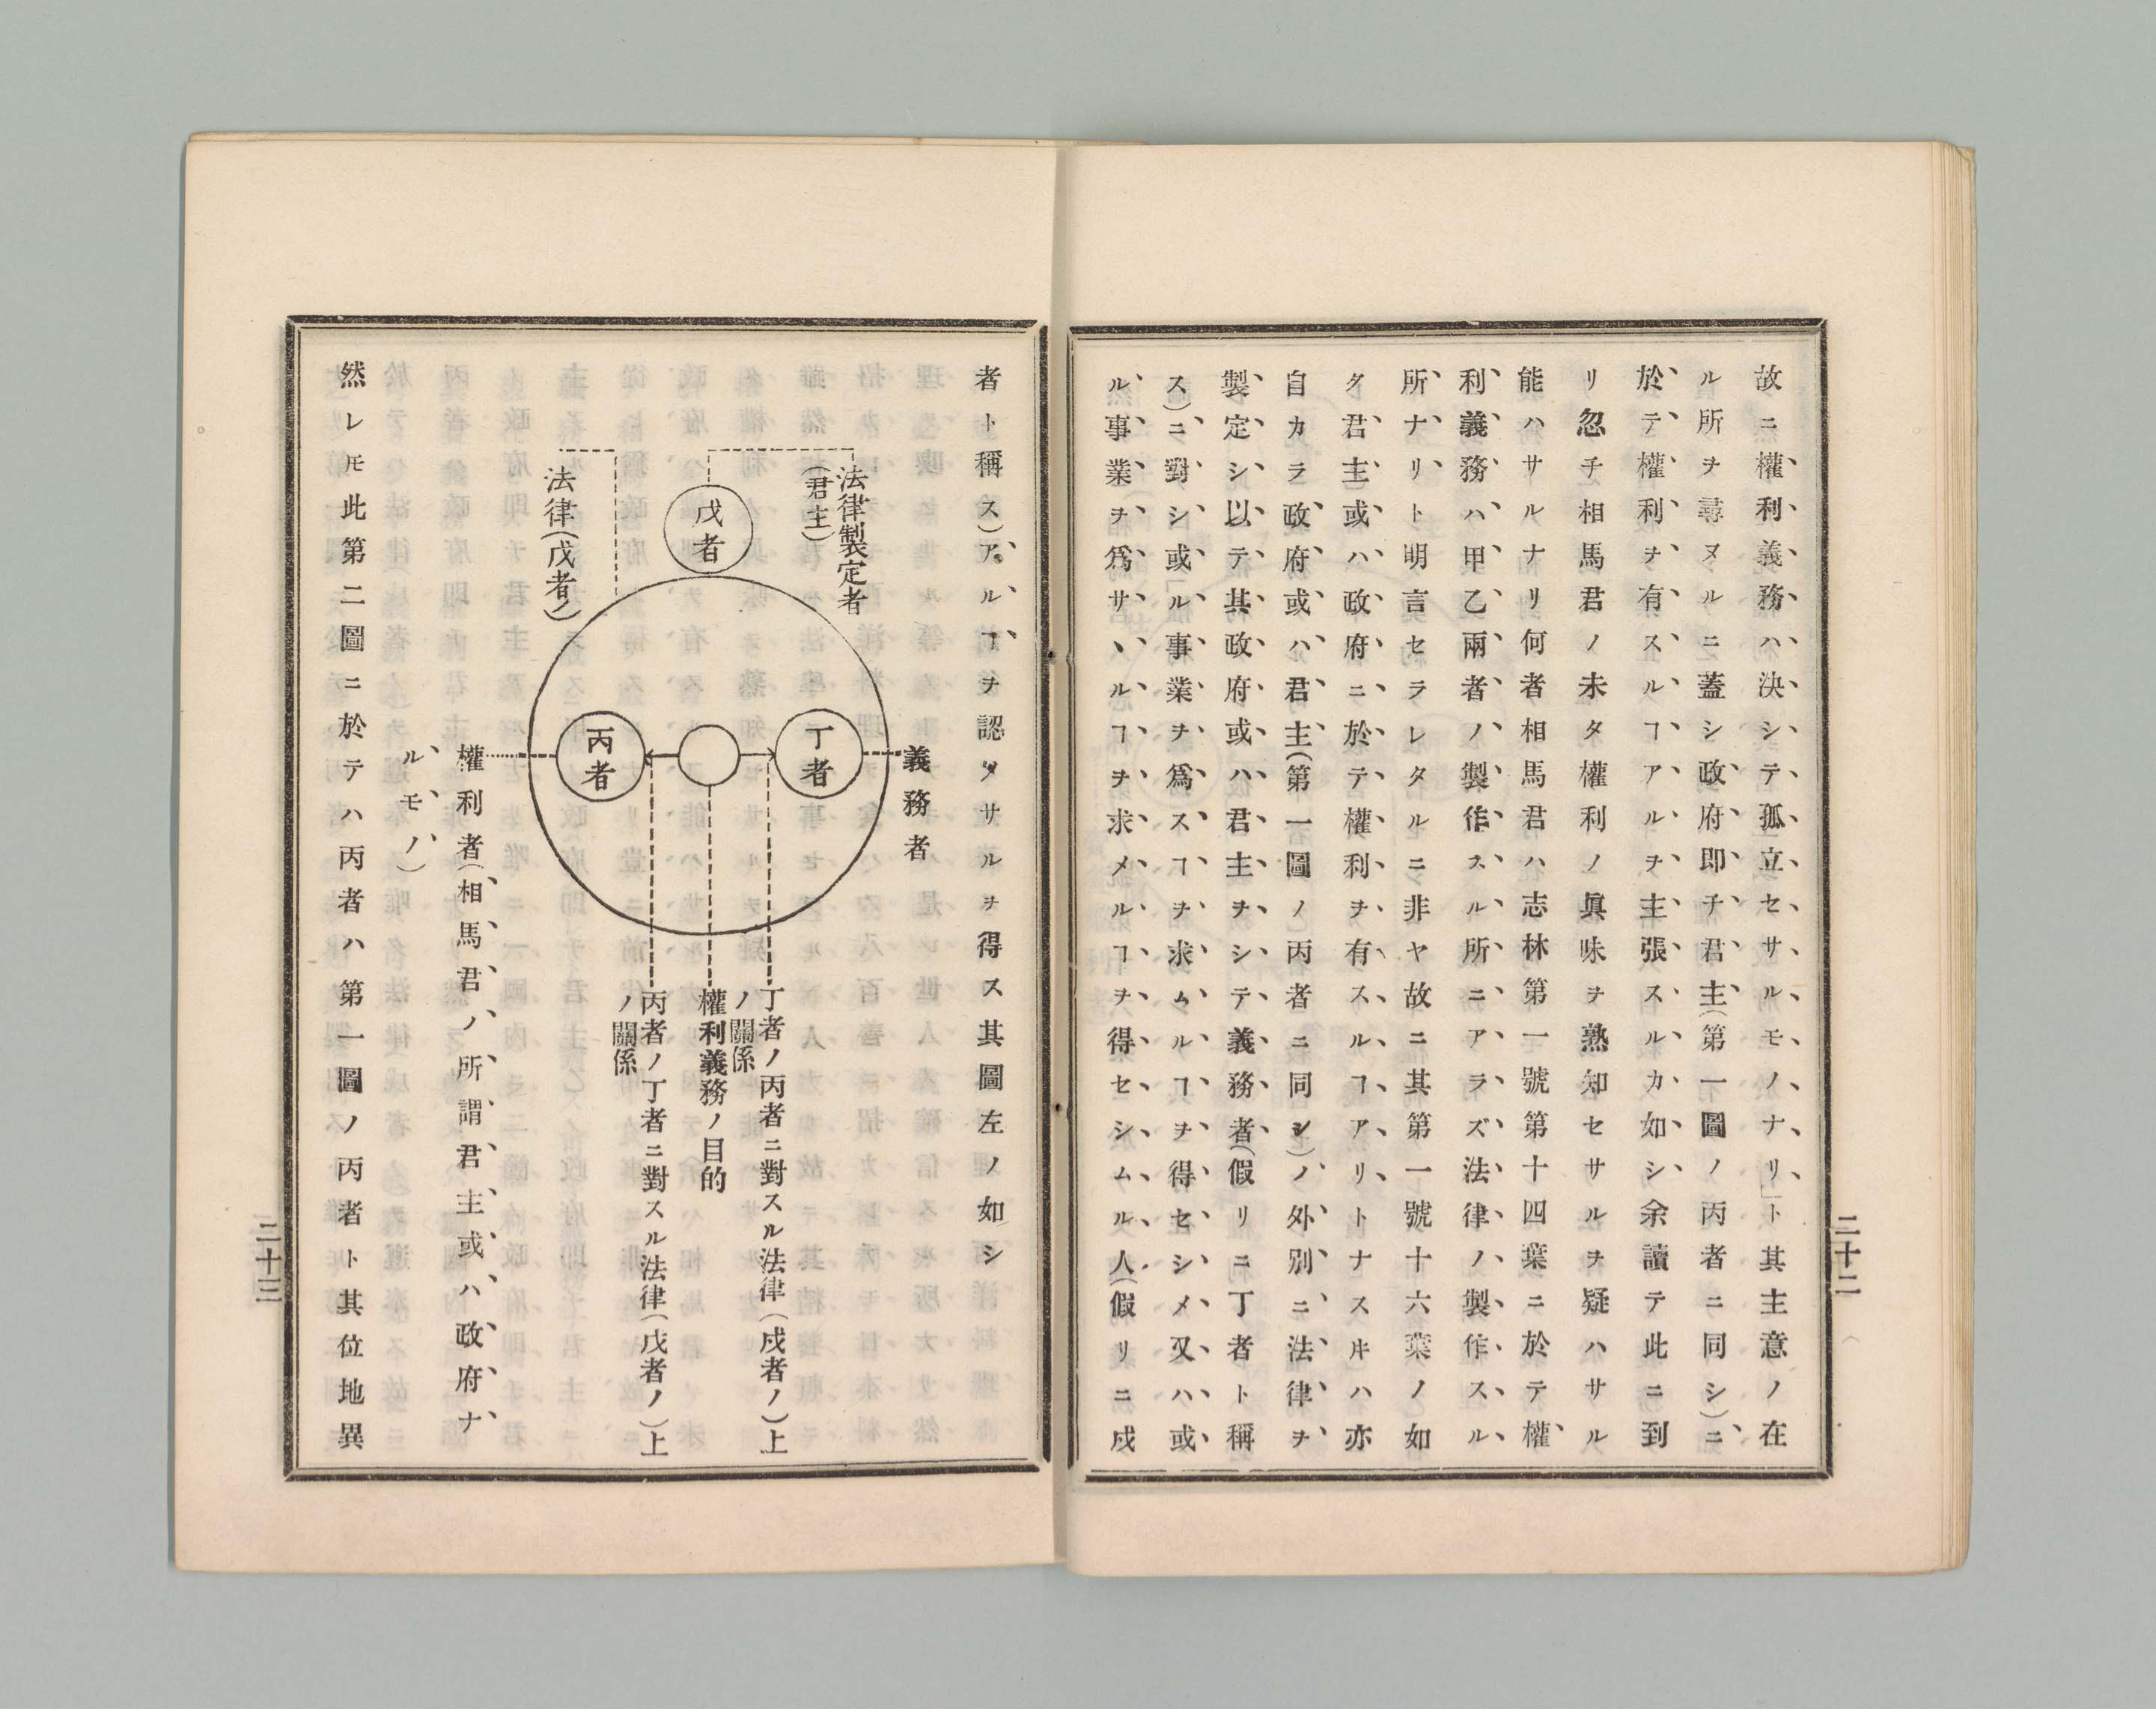 故ニ權利義務ハ決シテ孤立セサルモノナリ」ト其主意ノ在
ル所ヲ尋ヌルニ蓋シ政府即チ君主(第一圖ノ丙者ニ同シ)ニ
於テ權利ヲ有スルヿアルヲ主張スルカ如シ余讀テ此ニ到
リ忽チ相馬君ノ未タ權利ノ眞味ヲ熟知セサルヲ疑ハサル
能ハサルナリ何者相馬君ハ志林第一號第十四葉ニ於テ權
利義務ハ甲乙兩者ノ製作スル所ニアラズ法律ノ製作スル
所ナリト明言セラレタルニ非ヤ故ニ其第一號十六葉ノ如
ク君主或ハ政府ニ於テ權利ヲ有スルヿアリトナスヰハ亦
自カラ政府或ハ君主(第一圖ノ丙者ニ同シ)ノ外別ニ法律ヲ
製定シ以テ其政府或ハ君主ヲシテ義務者(假リニ丁者ト稱
ス)ニ對シ或ル事業ヲ爲スヿヲ求ムルヿヲ得セシメ又ハ或
ル事業ヲ爲サヽルヿヲ求メルヿヲ得セシムル人(假リニ戍
二十二
者ト稱ス)アルヿヲ認メサルヲ得ス其圖左ノ如シ
義務者
法律製定者
(君主)
戊者
法律(戊者ノ)
丁者
丙者
丁者ノ丙者ニ對スル法律(戍者ノ)上
ノ關係
權利義務ノ目的
丙者ノ丁者ニ對スル法律(戊者ノ)上
ノ關係
權利者(相馬君ノ所謂君主或ハ政府ナ
ルモノ)
然レ𪜈此第二圖ニ於テハ丙者ハ第一圖ノ丙者ト其位地異
二十三